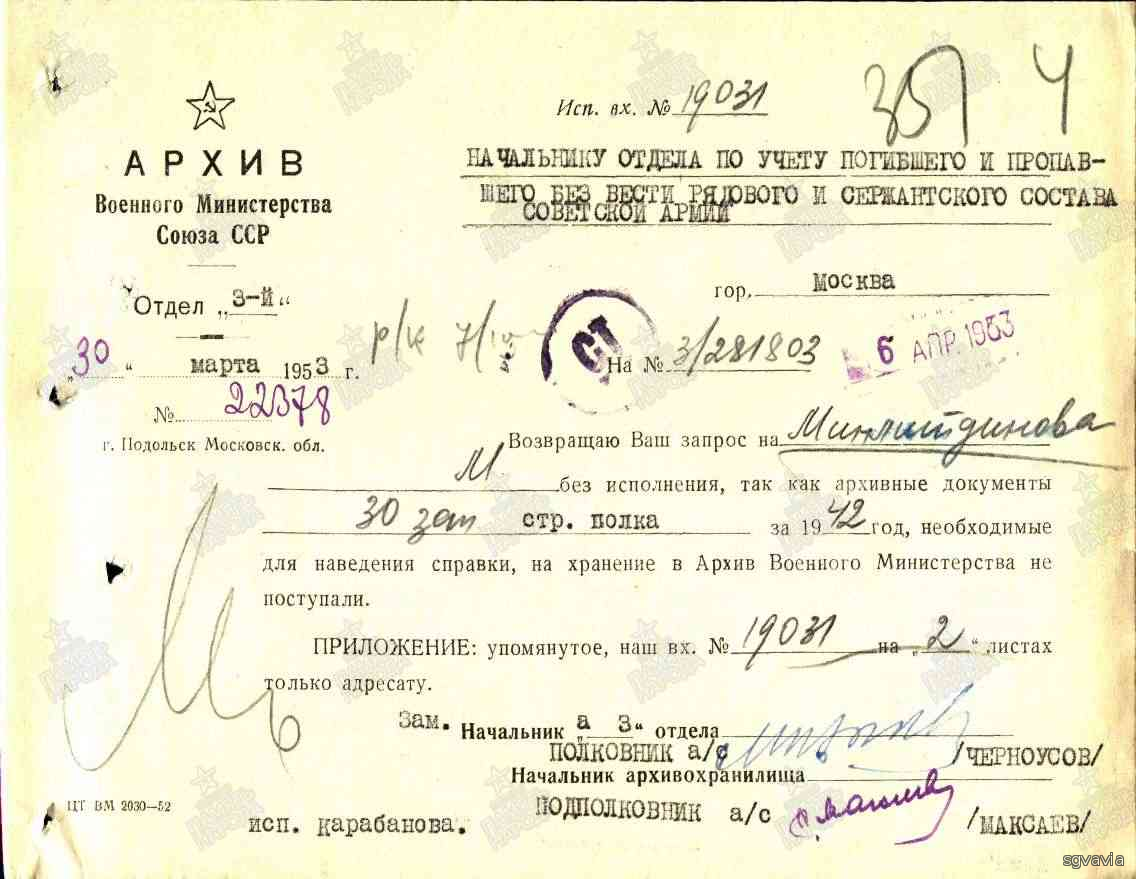 Исп. вх. № 19031
35 Ч
АРХИВ
Военного Министерства
Союза ССР
НАЧАЛЬНИКУ ОТДЕЛА ПО УЧЕТУ ПОГИБШЕГО И ПРОПАВ-
ШЕГО БЕЗ ВЕСТИ РЯДОВОГО И СЕРЖАНТСКОГО СОСТАВА
СОВЕТСКОЙ АРМИИ
Отдел „3-й“
гор. Москва
„30“ марта 1953 г.
р/к
СТ
На № 3/281803
6 АПР. 1953
№ 22378
г. Подольск Московск. обл.
Возвращаю Ваш запрос на
М без исполнения, так как архивные документы
30 зап стр. полка за 1942 год, необходимые
для наведения справки, на хранение в Архив Военного Министерства не
поступали.
ПРИЛОЖЕНИЕ: упомянутое, наш вх. № 19031 на „2“ листах
только адресату.
Зам. Начальник а „3“ отдела
ПОЛКОВНИК а/с /ЧЕРНОУСОВ/
Начальник архивохранилища
ПОДПОЛКОВНИК а/с /МАКСАЕВ/
ЦТ ВМ 2030—52
исп. Карабанова.
sgvavia